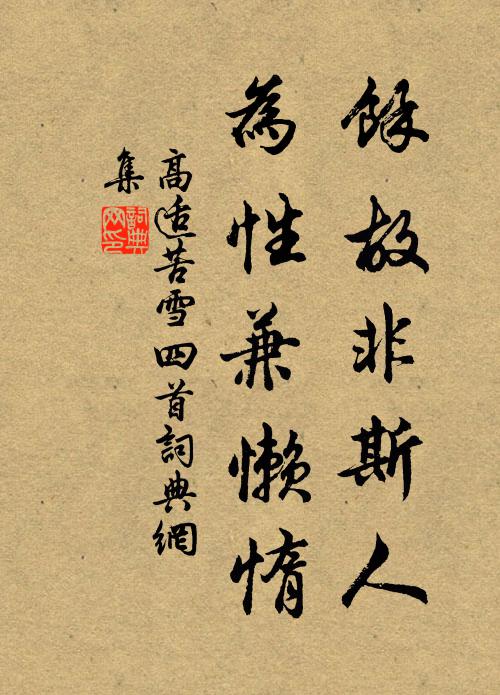 餘故非斯人
為性兼懶惰
高适苦雪四首詞典網
集
詞典網印